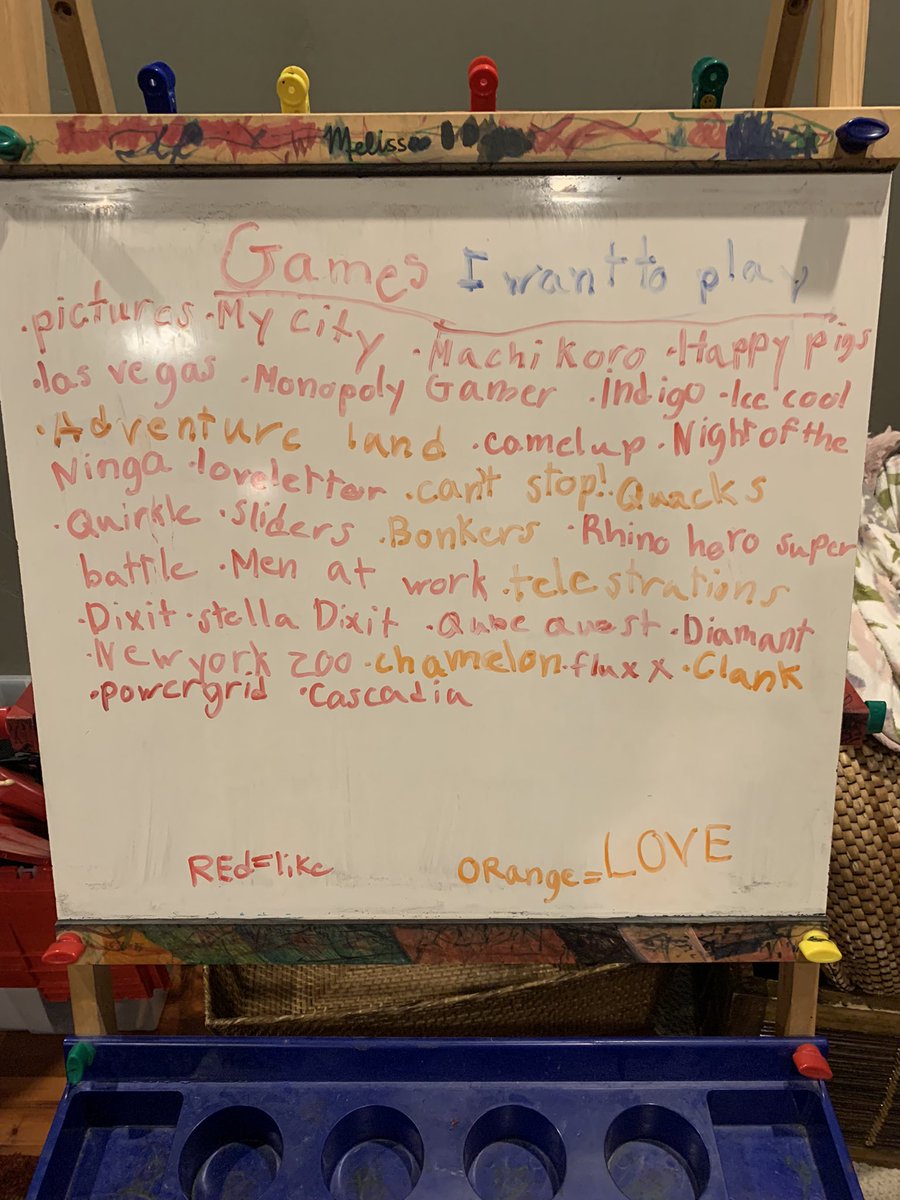 Melissa
Games I want to play
·pictures ·My city ·Machi Koro ·Happy pigs
·las vegas ·Monopoly Gamer ·Indigo ·Ice cool
·Adventure land ·camelup ·Night of the
Ninga ·loveletter ·can't stop! ·Quacks
·Quirkle ·sliders ·Bonkers ·Rhino hero super
battle ·Men at work ·telestrations
·Dixit ·stella Dixit ·Qube quest ·Diamant
·New york zoo ·chamelon ·fluxx ·Clank
·powergrid ·Cascadia
REd=like ORange=LOVE